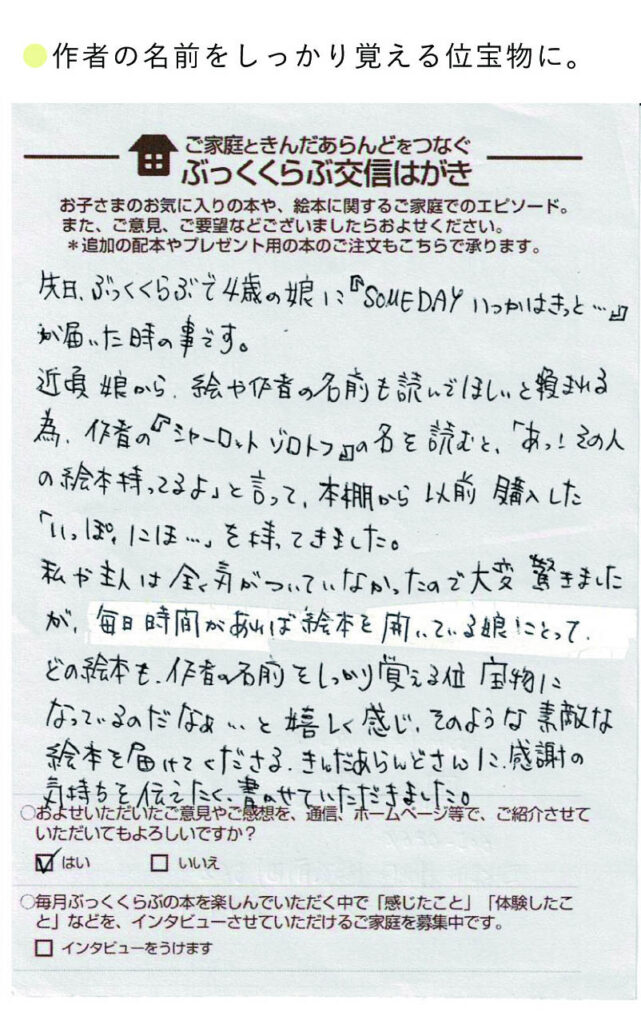 ●作者の名前をしっかり覚える位宝物に。
ご家庭ときんだあらんどをつなぐ
ぶっくくらぶ交信はがき
お子さまのお気に入りの本や、絵本に関するご家庭でのエピソード。
また、ご意見、ご要望などございましたらおよせください。
＊追加の配本やプレゼント用の本のご注文もこちらで承ります。
先日、ぶっくくらぶで4歳の娘に『SOMEDAY いっかはきっと…』
が届いた時の事です。
近頃 娘から、絵や作者の名前も読んでほしいと頼まれる
為、作者の『シャーロット ゾロトフ』の名を読むと、「あっ!その人
の絵本持ってるよ」と言って、本棚から 以前 購入した
「いっぽ、にほ…」を持ってきました。
私や主人は全く気がついていなかったので大変 驚きました
が、毎日時間があれば絵本を開いている娘にとって、
どの絵本も、作者の名前をしっかり覚える位 宝物に
なっているのだなぁ…と嬉しく感じ、そのような素敵な
絵本を届けてくださる、きんだあらんどさんに、感謝の
気持ちを伝えたく、書かせていただきました。
○およせいただいたご意見やご感想を、通信、ホームページ等で、ご紹介させて
いただいてもよろしいですか？
はい いいえ
○毎月ぶっくくらぶの本を楽しんでいただく中で「感じたこと」「体験したこ
と」などを、インタビューさせていただけるご家庭を募集中です。
インタビューをうけます